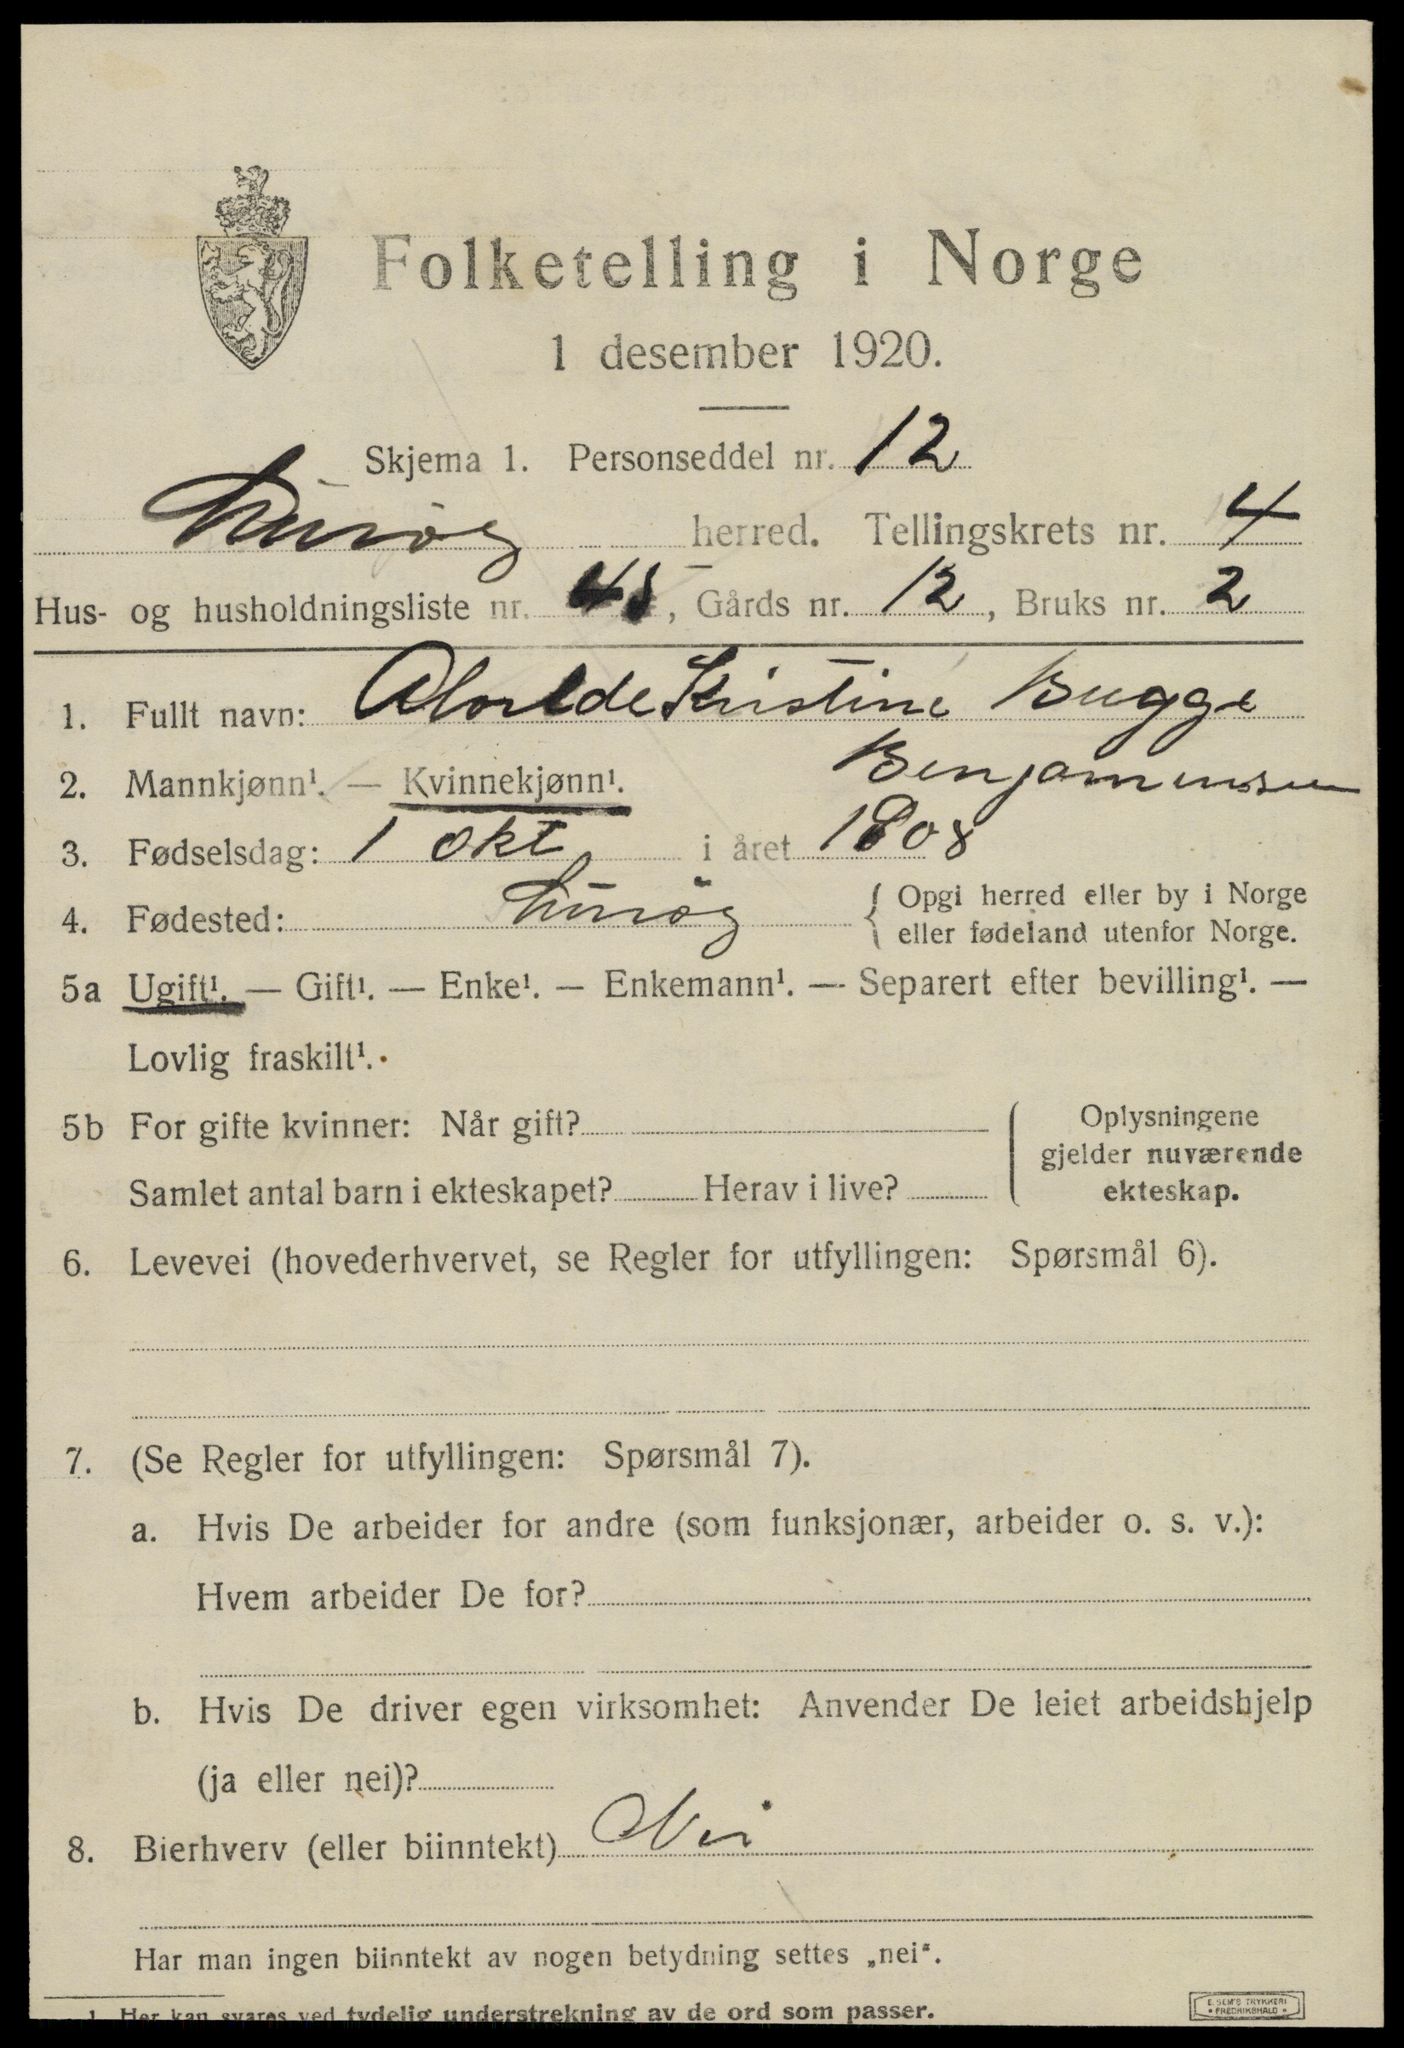 Folketelling i Norge
1 desember 1920.
Skjema 1. Personseddel nr. 12
Lurøy herred. Tellingskrets nr. 4
Hus- og husholdningsliste nr. 48, Gårds nr. 12, Bruks nr. 2
1. Fullt navn: Kristine Bugge
2. Mannkjønn¹. — Kvinnekjønn¹. Benjaminsen
3. Fødselsdag: 1 okt i året 1908
4. Fødested: Lurøy { Opgi herred eller by i Norge
eller fødeland utenfor Norge.
5a Ugift¹. — Gift¹. — Enke¹. — Enkemann¹. — Separert efter bevilling¹. —
Lovlig fraskilt¹.
5b For gifte kvinner: Når gift? Oplysningene
gjelder nuværende
Samlet antal barn i ekteskapet? Herav i live? ekteskap.
6. Levevei (hovederhvervet, se Regler for utfyllingen: Spørsmål 6).
7. (Se Regler for utfyllingen: Spørsmål 7).
a. Hvis De arbeider for andre (som funksjonær, arbeider o. s. v.):
Hvem arbeider De for?
b. Hvis De driver egen virksomhet: Anvender De leiet arbeidshjelp
(ja eller nei)?
8. Bierhverv (eller biinntekt) Nei
Har man ingen biinntekt av nogen betydning settes „nei“.
1 Her kan svares ved tydelig understrekning av de ord som passer.
E. SEM'S TRYKKERI
FREDRIKSHALD